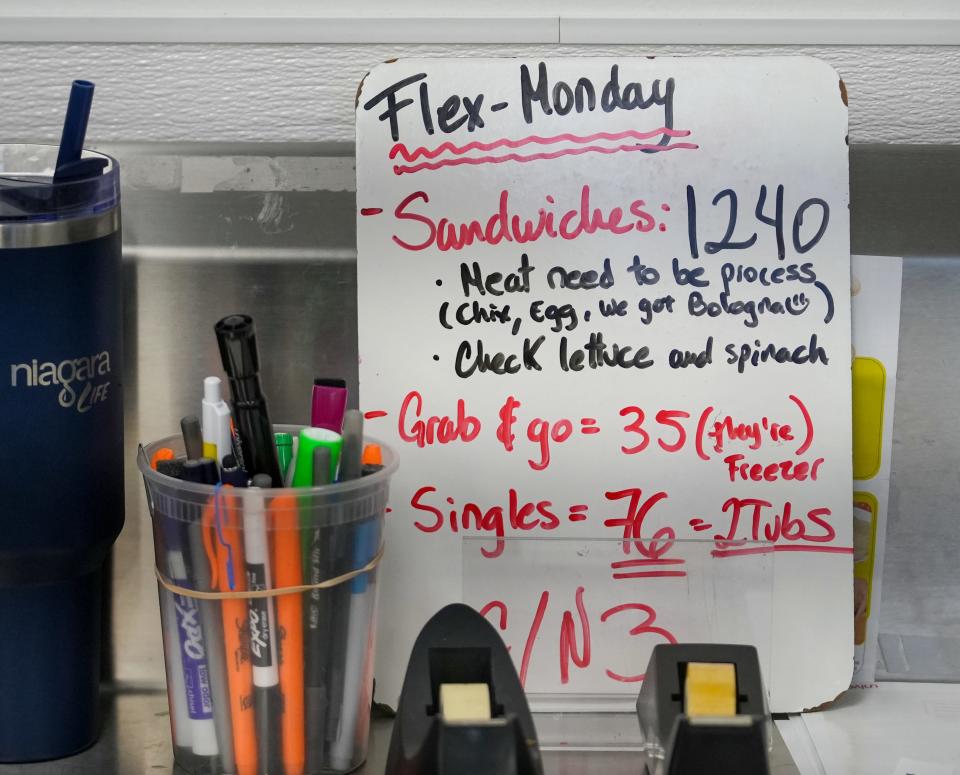 Flex-Monday
- Sandwiches: 1240
• Meat need to be process
(Chix, Egg, we got Bologna☺)
• Check lettuce and spinach
- Grab & go = 35 (they're)
Freezer
- Singles = 76 = 2Tubs
/N3
niagara
LIFE
EXPO
EXPO